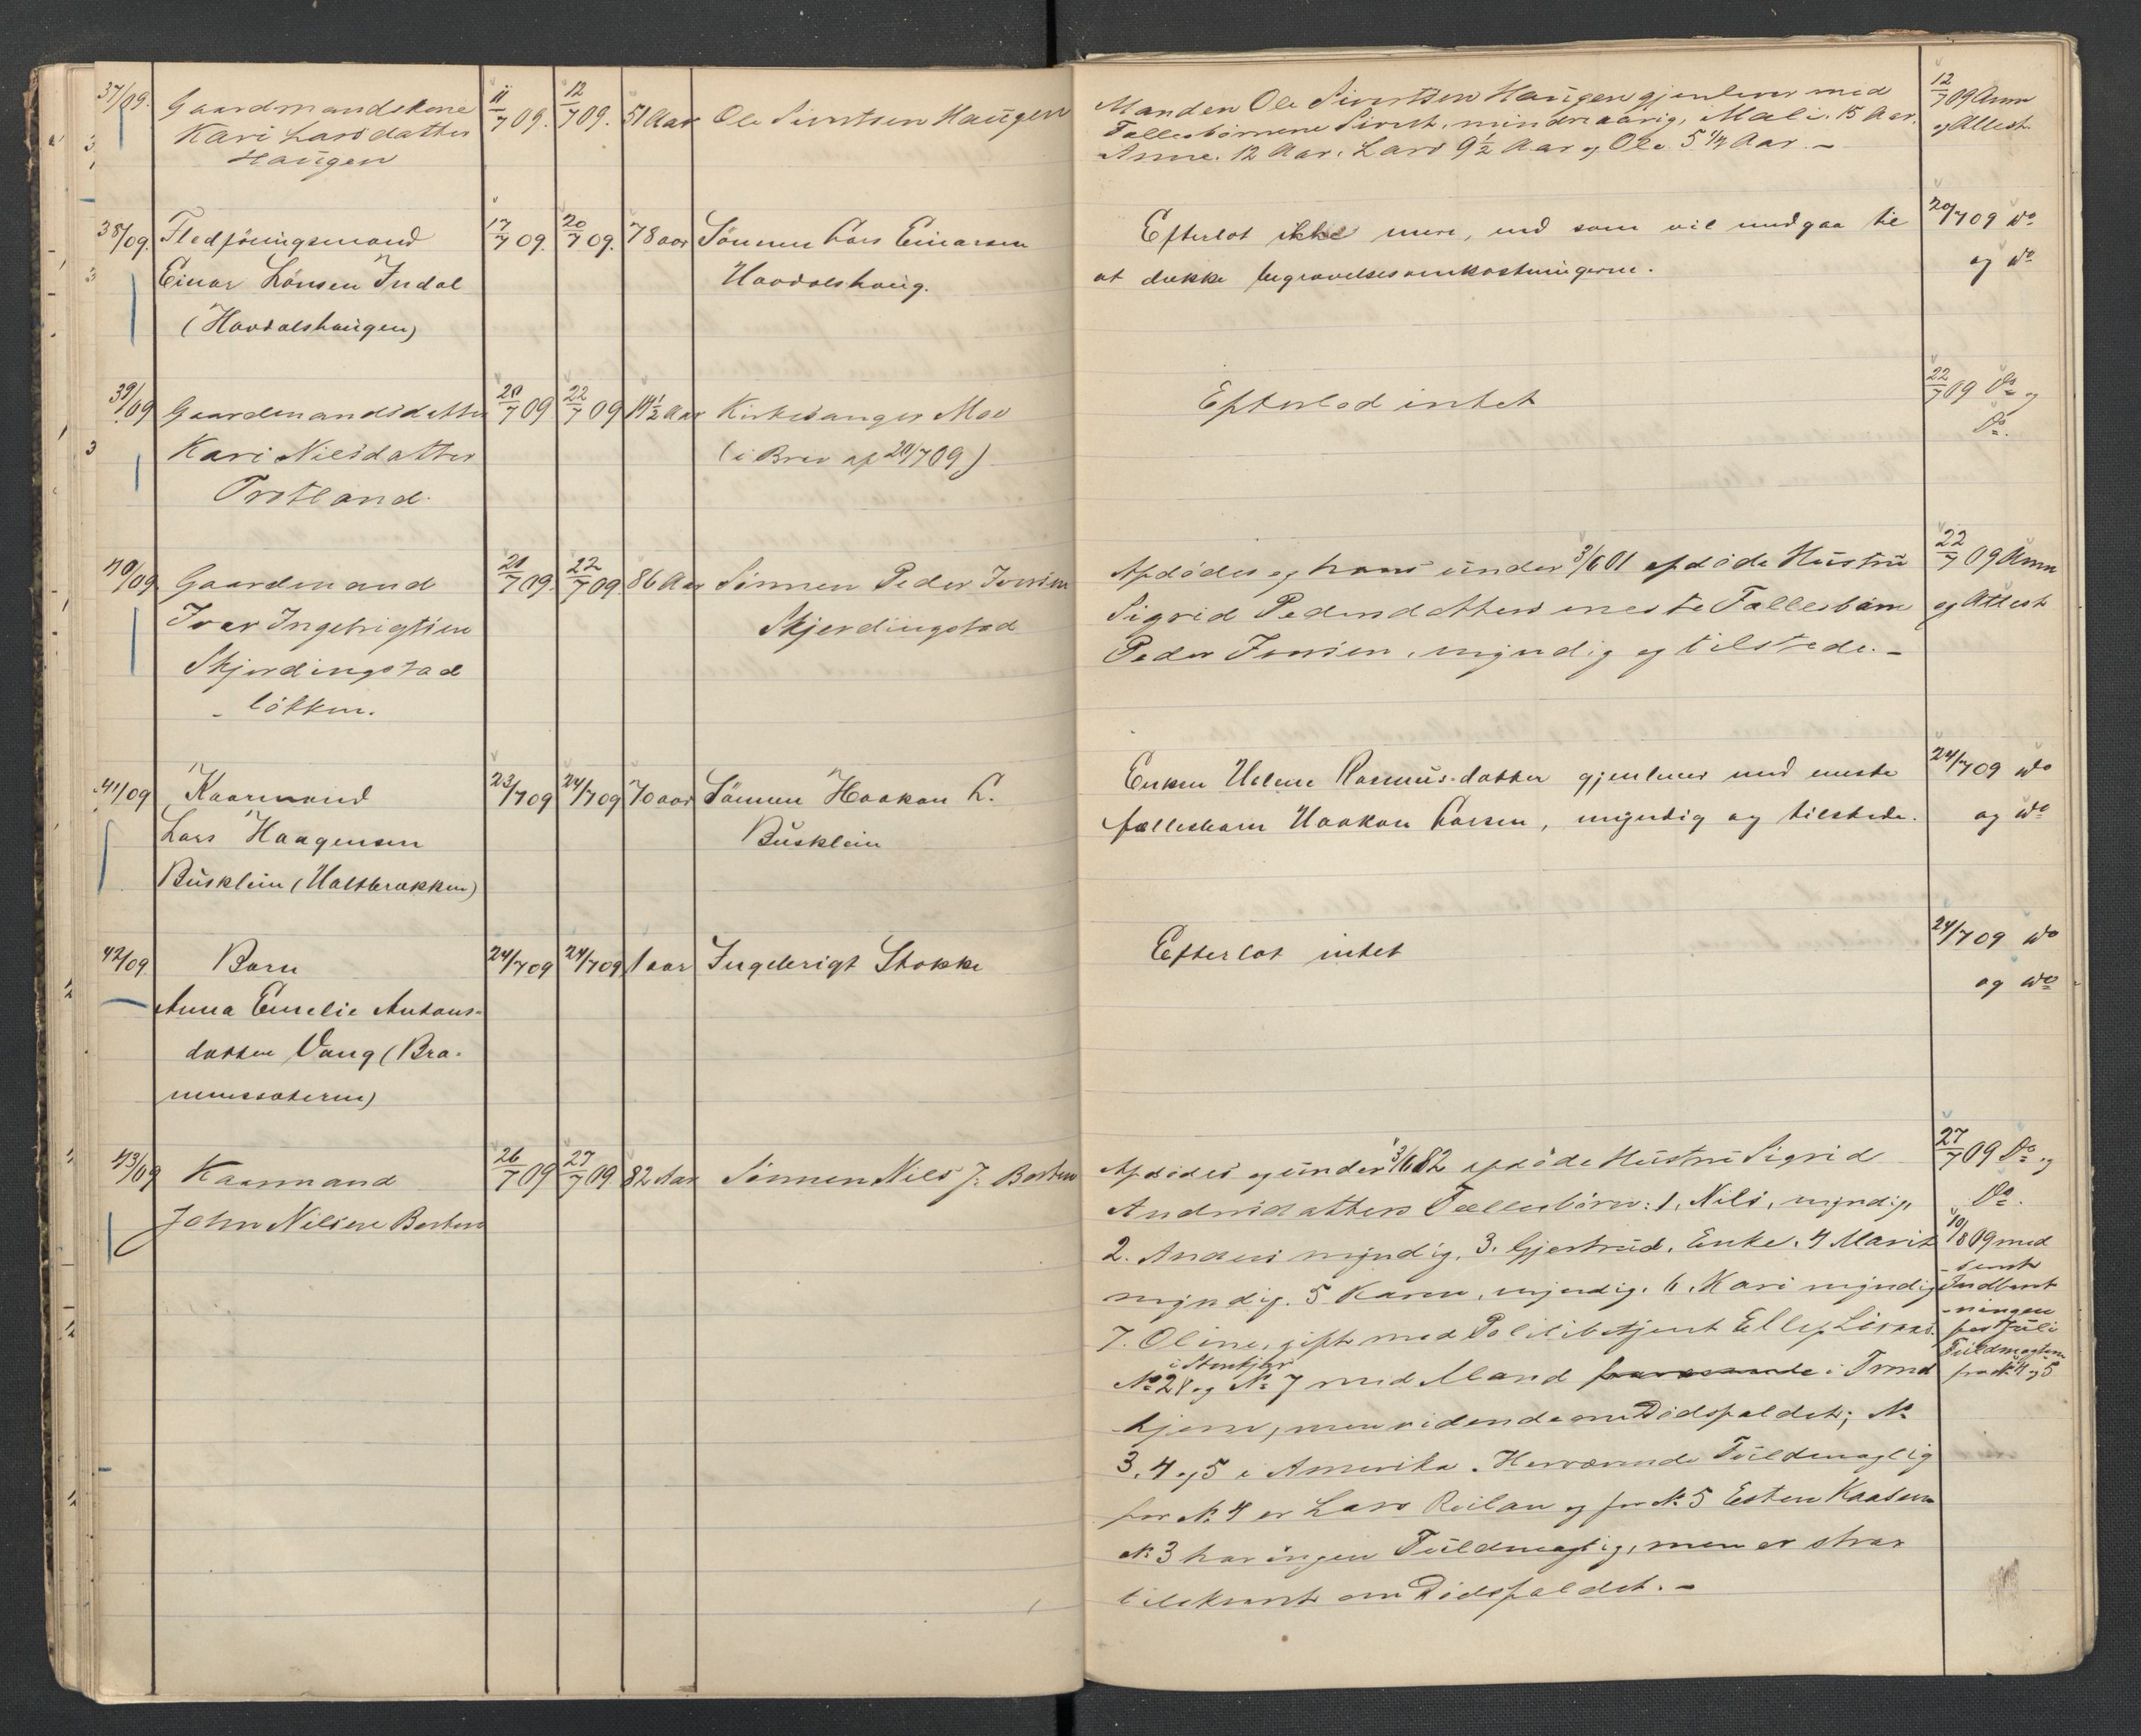 37/09. Gaardmandskone 11/7 09. 12/7 09. 51 Aar Ole Sivertsen Haugen
Kari Larsdatter
Haugen
Manden Ole Sivertsen Haugen gjenlever med
Fællesbörnene Sivert, mindreaarig, Mali. 15 Aar.
Anne. 12 Aar. Lars 9 1/2 Aar og Ole 5 1/4 Aar. -
12/7 09 Anm
og Attest.
38/09. Flodföringsmand 17/7 09. 20/7 09. 78 aar Sönnen Lars Einarsen
Einar Lönsen Indal Haavdalshaug.
(Haavdalshaugen)
Efterlot ikke mere, end som vil medgaa til
at dække begravelsesomkostningerne.
20/7 09 do
og do
39/09 Gaardmandsdatter 20/7 09 22/7 09 14 1/2 Aar Kirkesanger Moe
Kari Nilsdatter (i Brev af 20/7 09)
Trotland.
Efterlod intet
22/7 09 Do og
Do.
40/09. Gaardmand 20/7 09. 22/7 09 86 Aar Sönnen Peder Iversen
Iver Ingebrigtsen Skjerdingstad
Skjerdingstad
- lökken.
Afdödes og hans under 3/6 01 afdöde Hustru
Sigrid Pedersdatters eneste Fællesbarn
Peder Iversen, myndig og tilstede. -
22/7 09 Anm
og Attest
41/09 Kaarmand 23/7 09 24/7 09 70 aar Sönnen Haakon L.
Lars Haagensen Busklein
Busklein (Haltbrækken)
Enken Helene Rasmus-datter gjenlever med eneste
fællesbarn Haakon Larsen, myndig og tilstede.
24/7 09 do
og do
42/09 Barn 24/7 09 24/7 09 1 aar Ingebrigt Stokke
Anna Emelie Antons-
datter Vang (Bra-
Efterlot intet
24/7 09 do
og do
43/09 Kaarmand 26/7 09 27/7 09 82 Aar Sönnen Nils J. Borten
John Nilsen Borten
Afdödes og under 3/6 82 afdöde Hustru Sigrid
Andersdatters Fællesbörn: 1, Nils, myndig,
2. Anders myndig. 3. Gjertrud, Enke. 4 Marit
myndig. 5 Karen, myndig. 6. Kari myndig
7. Oline, gift med Politibetjent Ellef
i Stenkjær
No 2 og No 7 med Mand fraværende i Trond
hjem, men vidende om Dödsfaldet; No
3, 4 og 5 i Amerika. Herværende Fuldmægtig
for No 4 er Lars Reitan og for No 5 Esten Kaasen
No 3 har ingen Fuldmægtig, men er strax
tilskrevet om Dödsfaldet. -
27/7 09 Do og
Do.
10/8 09 med
- sendt
Indberet
- ningen
for Juli
Fuldmagten
fra No 4 og 5